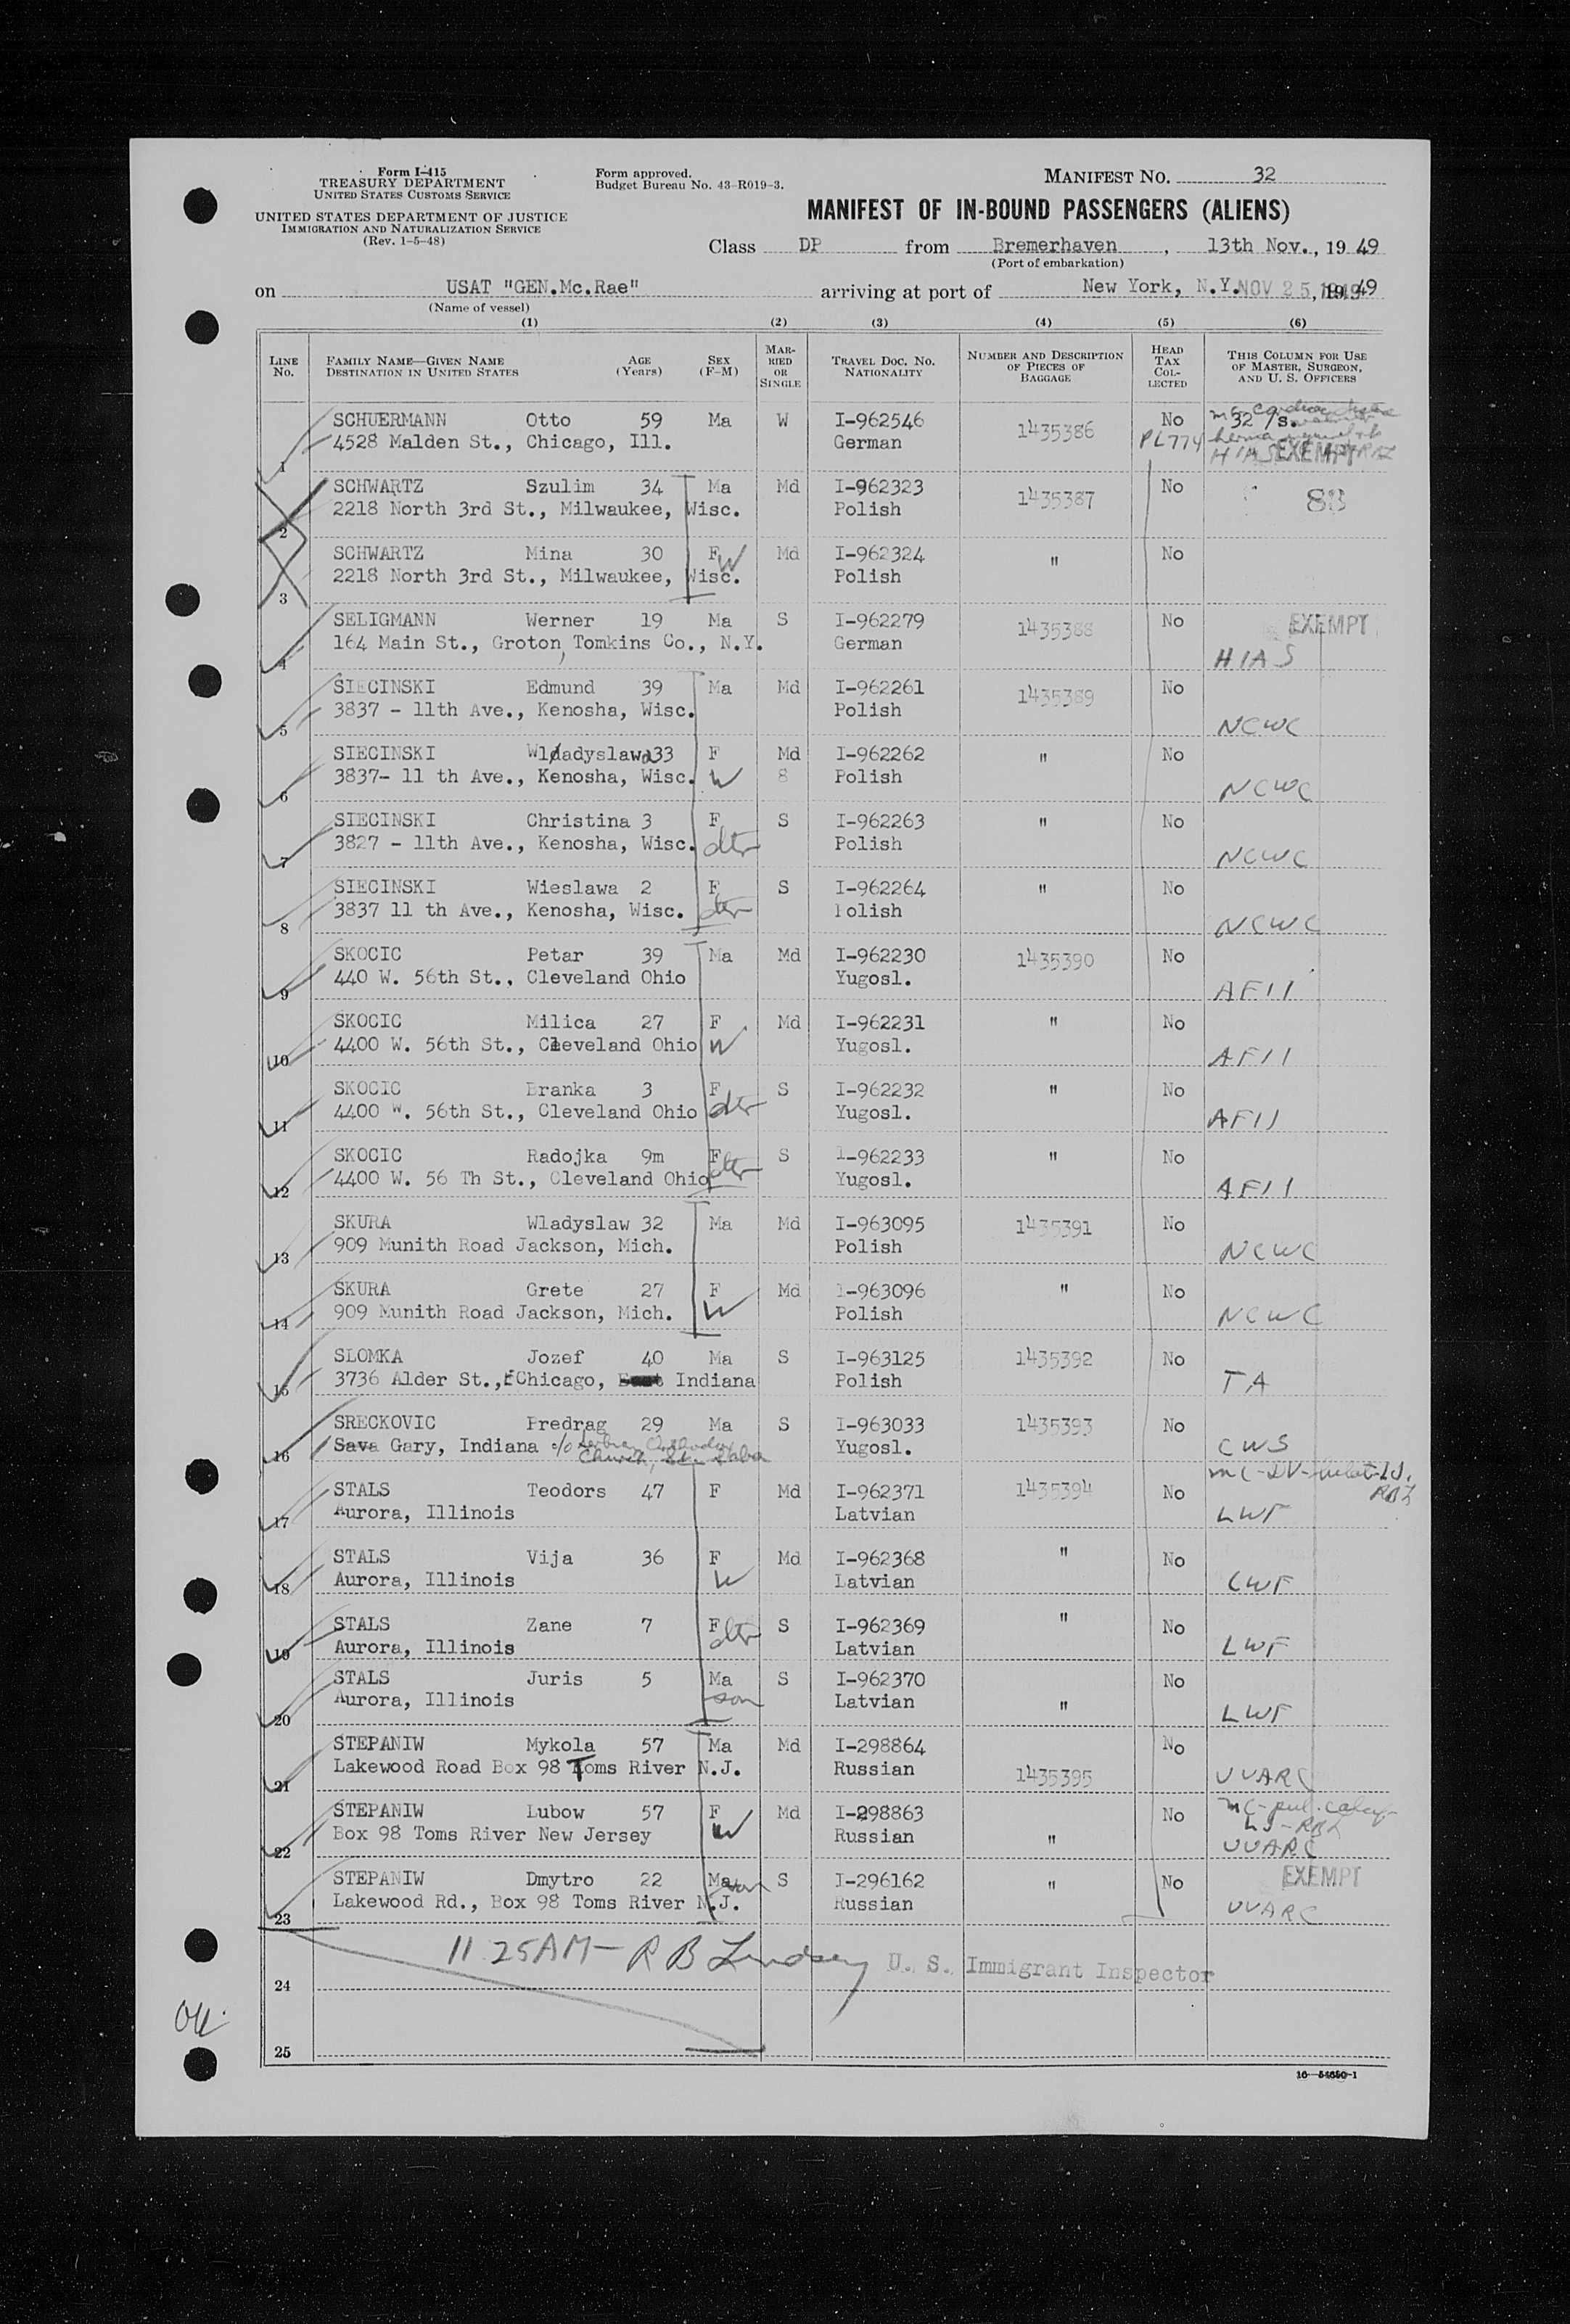 Form I-415
TREASURY DEPARTMENT
UNITED STATES CUSTOMS SERVICE
UNITED STATES DEPARTMENT OF JUSTICE
IMMIGRATION AND NATURALIZATION SERVICE
(Rev. 1-5-48)
Form approved.
Budget Bureau No. 43-R019-3.
MANIFEST NO. 32
MANIFEST OF IN-BOUND PASSENGERS (ALIENS)
Class DP from Bremerhaven, 13th Nov., 19 49
(Port of embarkation)
on USAT "GEN.Mc.Rae" arriving at port of New York, N.Y. NOV 25, 1949
(Name of vessel)
(1) (2) (3) (4) (5) (6)
LINE No. FAMILY NAME—GIVEN NAME DESTINATION IN UNITED STATES AGE (Years) SEX (F-M) MARRIED OR SINGLE TRAVEL DOC. NO. NATIONALITY NUMBER AND DESCRIPTION OF PIECES OF BAGGAGE HEAD TAX COLLECTED THIS COLUMN FOR USE OF MASTER, SURGEON, AND U. S. OFFICERS
1 SCHUERMANN Otto 59 Ma W I-962546 1435386 No 32 /s.
4528 Malden St., Chicago, Ill. German PL774 HIAS EXEMPT
2 SCHWARTZ Szulim 34 Ma Md I-962323 1435387 No
2218 North 3rd St., Milwaukee, Wisc. Polish 8B
3 SCHWARTZ Mina 30 F W Md I-962324 " No
2218 North 3rd St., Milwaukee, Wisc. Polish
4 SELIGMANN Werner 19 Ma S I-962279 1435388 No EXEMPT
164 Main St., Groton, Tomkins Co., N.Y. German HIAS
5 SIECINSKI Edmund 39 Ma Md I-962261 1435389 No
3837 - 11th Ave., Kenosha, Wisc. Polish NCWC
6 SIECINSKI Wladyslawa 33 F Md I-962262 " No
3837- 11 th Ave., Kenosha, Wisc. W 8 Polish NCWC
7 SIECINSKI Christina 3 F S I-962263 " No
3827 - 11th Ave., Kenosha, Wisc. dtr Polish NCWC
8 SIECINSKI Wieslawa 2 F S I-962264 " No
3837 11 th Ave., Kenosha, Wisc. dtr Polish NCWC
9 SKOCIC Petar 39 Ma Md I-962230 1435390 No
440 W. 56th St., Cleveland Ohio Yugosl. AFII
10 SKOCIC Milica 27 F Md I-962231 " No
4400 W. 56th St., Cleveland Ohio W Yugosl. AFII
11 SKOCIC Branka 3 F S I-962232 " No
4400 W. 56th St., Cleveland Ohio dtr Yugosl. AFII
12 SKOCIC Radojka 9m F S I-962233 " No
4400 W. 56 Th St., Cleveland Ohio dtr Yugosl. AFII
13 SKURA Wladyslaw 32 Ma Md I-963095 1435391 No
909 Munith Road Jackson, Mich. Polish NCWC
14 SKURA Grete 27 F Md I-963096 " No
909 Munith Road Jackson, Mich. W Polish NCWC
15 SLOMKA Jozef 40 Ma S I-963125 1435392 No
3736 Alder St., E Chicago, Indiana Polish TA
16 SRECKOVIC Predrag 29 Ma S I-963033 1435393 No
Sava Gary, Indiana c/o Serbian Orthodox Church, St. Saba Yugosl. CWS
17 STALS Teodors 47 F Md I-962371 1435394 No
Aurora, Illinois Latvian LWF
18 STALS Vija 36 F Md I-962368 " No
Aurora, Illinois W Latvian LWF
19 STALS Zane 7 F S I-962369 " No
Aurora, Illinois dtr Latvian LWF
20 STALS Juris 5 Ma S I-962370 No
Aurora, Illinois son Latvian " LWF
21 STEPANIW Mykola 57 Ma Md I-298864 No
Lakewood Road Box 98 Toms River N.J. Russian 1435395 UUARC
22 STEPANIW Lubow 57 F Md I-298863 No
Box 98 Toms River New Jersey W Russian " UUARC
23 STEPANIW Dmytro 22 Ma son S I-296162 " No EXEMPT
Lakewood Rd., Box 98 Toms River N.J. Russian UUARC
11 25AM - R B Lindsey U. S. Immigrant Inspector
24
OK
25
16—54650-1